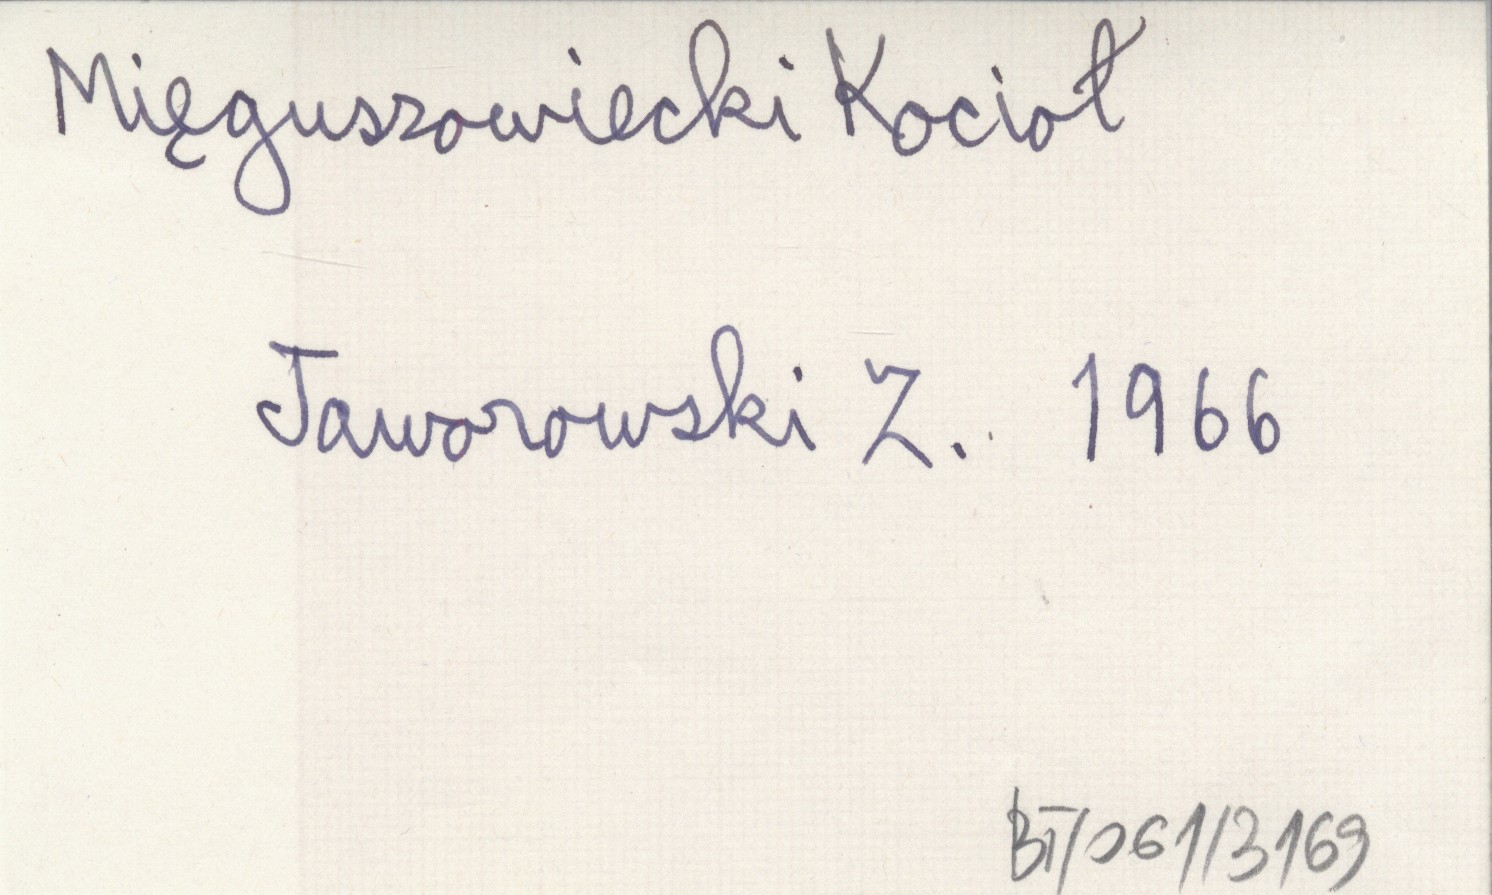 Mięguszowiecki Kocioł
Jaworowski Z. 1966
BT/061/3169